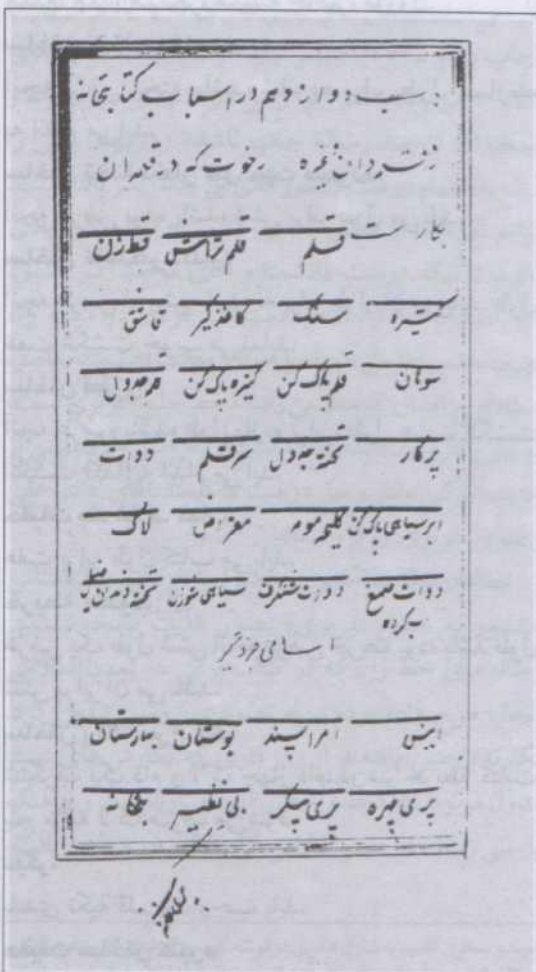 سبب دوازدهم در اسباب کتابخانه
دفتردان وغیره رخوت که در قلمدان
بکارست قلم قلم تراش قط زن
کتیره سنگ کاغذگیر قاشق
سوهان قلم پاک کن کتیره پاک کن قلم جدول
پرکار تخته جدول سر قلم دوات
ابر سیاهی پاک کن کلیچه موم مقراض لاک
دوات صمغ دوات شنگرف سیاهی سوزن تخته دهان
به کرده
اسامی جزوگیر
انیس امراپسند بوستان بهارستان
پری چهره پری پیکر بی نظیر